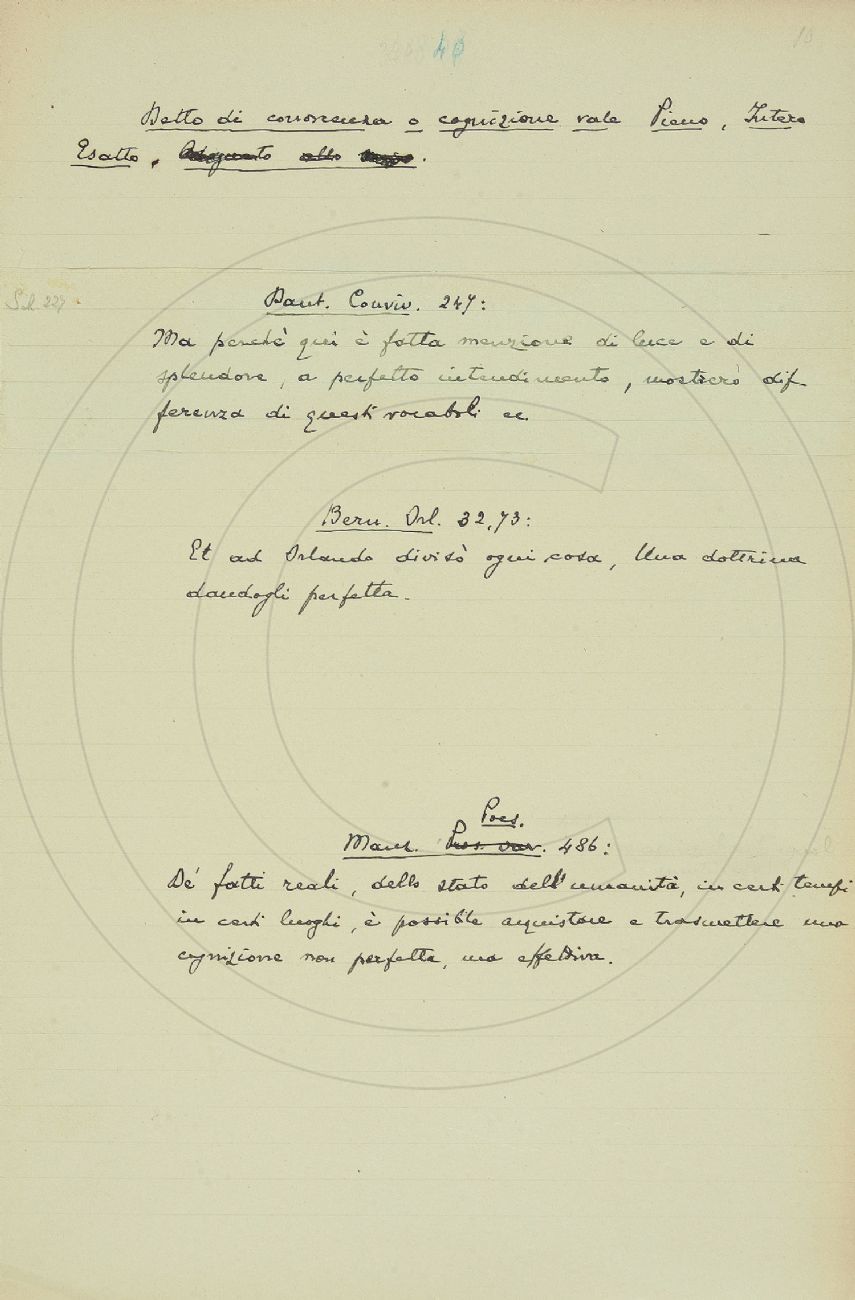 40
10
Detto di conoscenza o cognizione vale Pieno, Intero
Esatto, Adeguato allo .
Sel. 227
Dant. Conviv. 247:
Ma perchè qui è fatta menzione di luce e di
splendore, a perfetto intendimento, mostrerò dif-
ferenza di questi vocaboli ec.
Bern. Orl. 32,73:
Et ad Orlando divisò ogni cosa, Una dottrina
dandogli perfetta.
Poes.
Manz. Pros. var. 486:
De' fatti reali, dello stato dell'umanità, in certi tempi
in certi luoghi, è possibile acquistare e trasmettere una
cognizione non perfetta, ma effettiva.